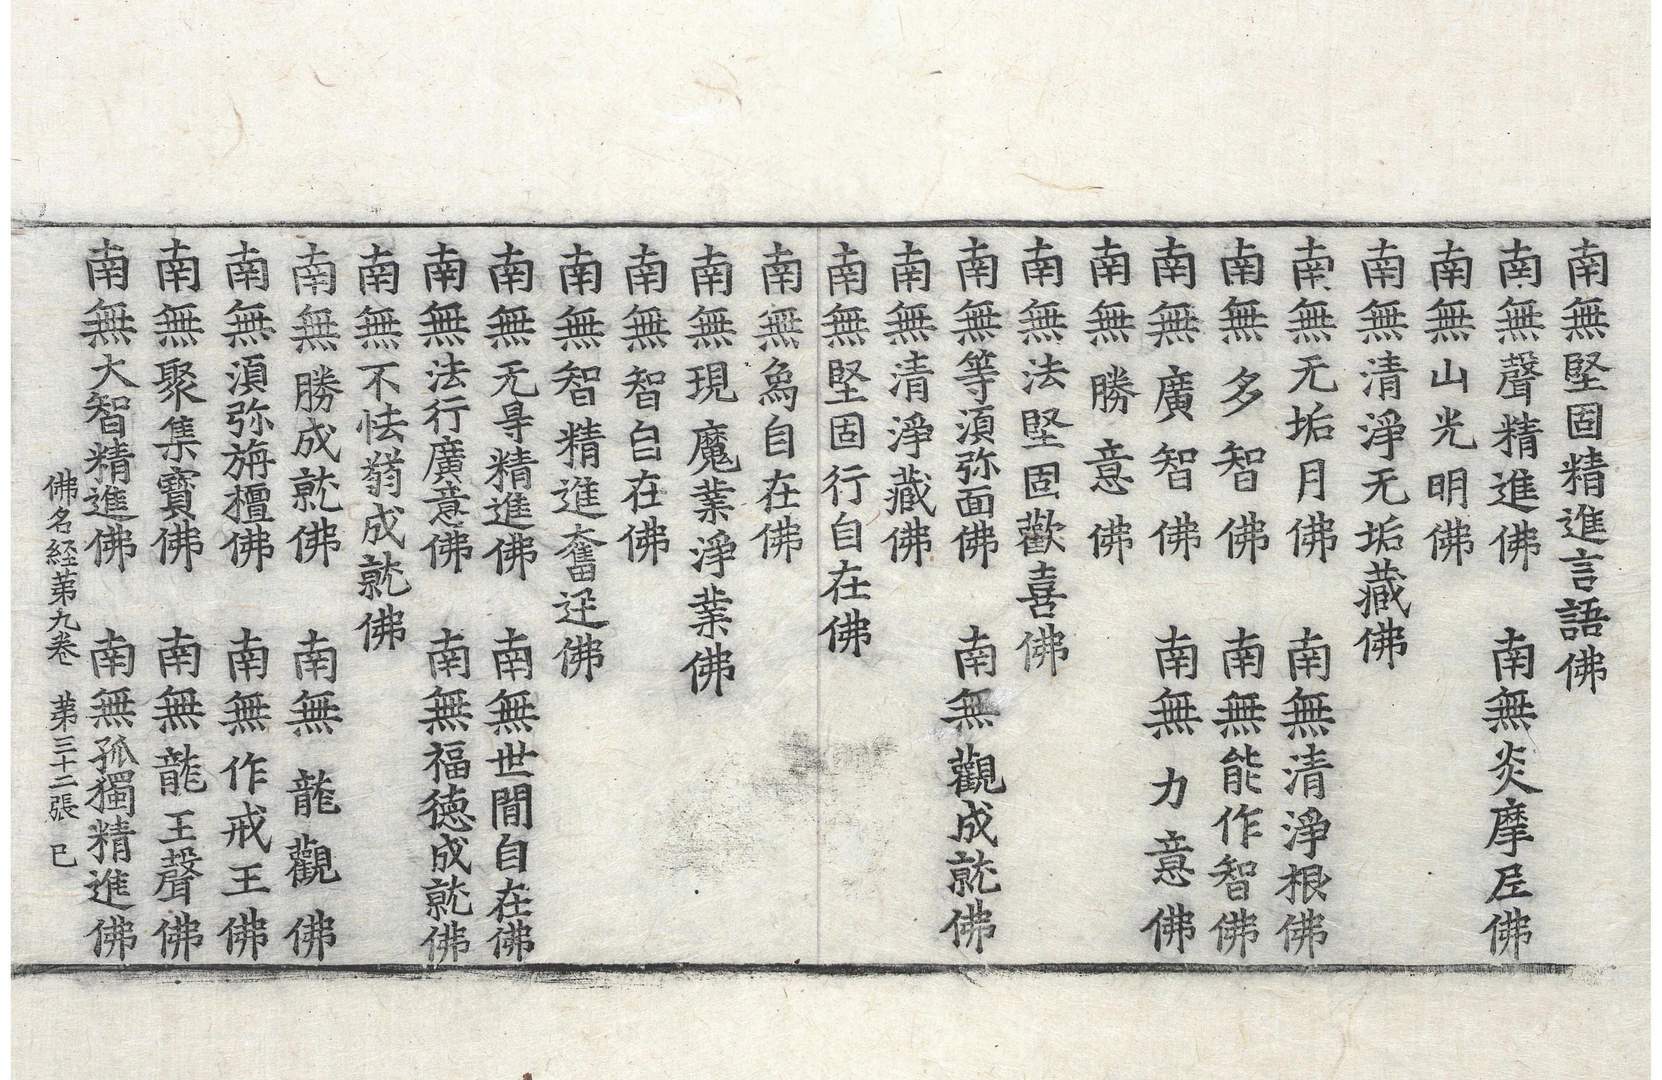 南無堅固精進言語佛
南無聲精進佛　南無炎摩尼佛
南無山光明佛
南無清淨无垢藏佛
南無无垢月佛　南無清淨根佛
南無多智佛　南無能作智佛
南無廣智佛　南無力意佛
南無勝意佛
南無法堅固歡喜佛
南無等湏弥面佛　南無觀成就佛
南無清淨藏佛
南無堅固行自在佛
南無為自在佛
南無現魔業淨業佛
南無智自在佛
南無智精進奮迅佛
南無无㝵精進佛　南無世間自在佛
南無法行廣意佛　南無福德成就佛
南無不怯弱成就佛
南無勝成就佛　南無龍觀佛
南無湏弥旃檀佛　南無作戒王佛
南無聚集寶佛　南無龍王聲佛
南無大智精進佛　南無孤獨精進佛
佛名経苐九卷　苐三十二張　巳